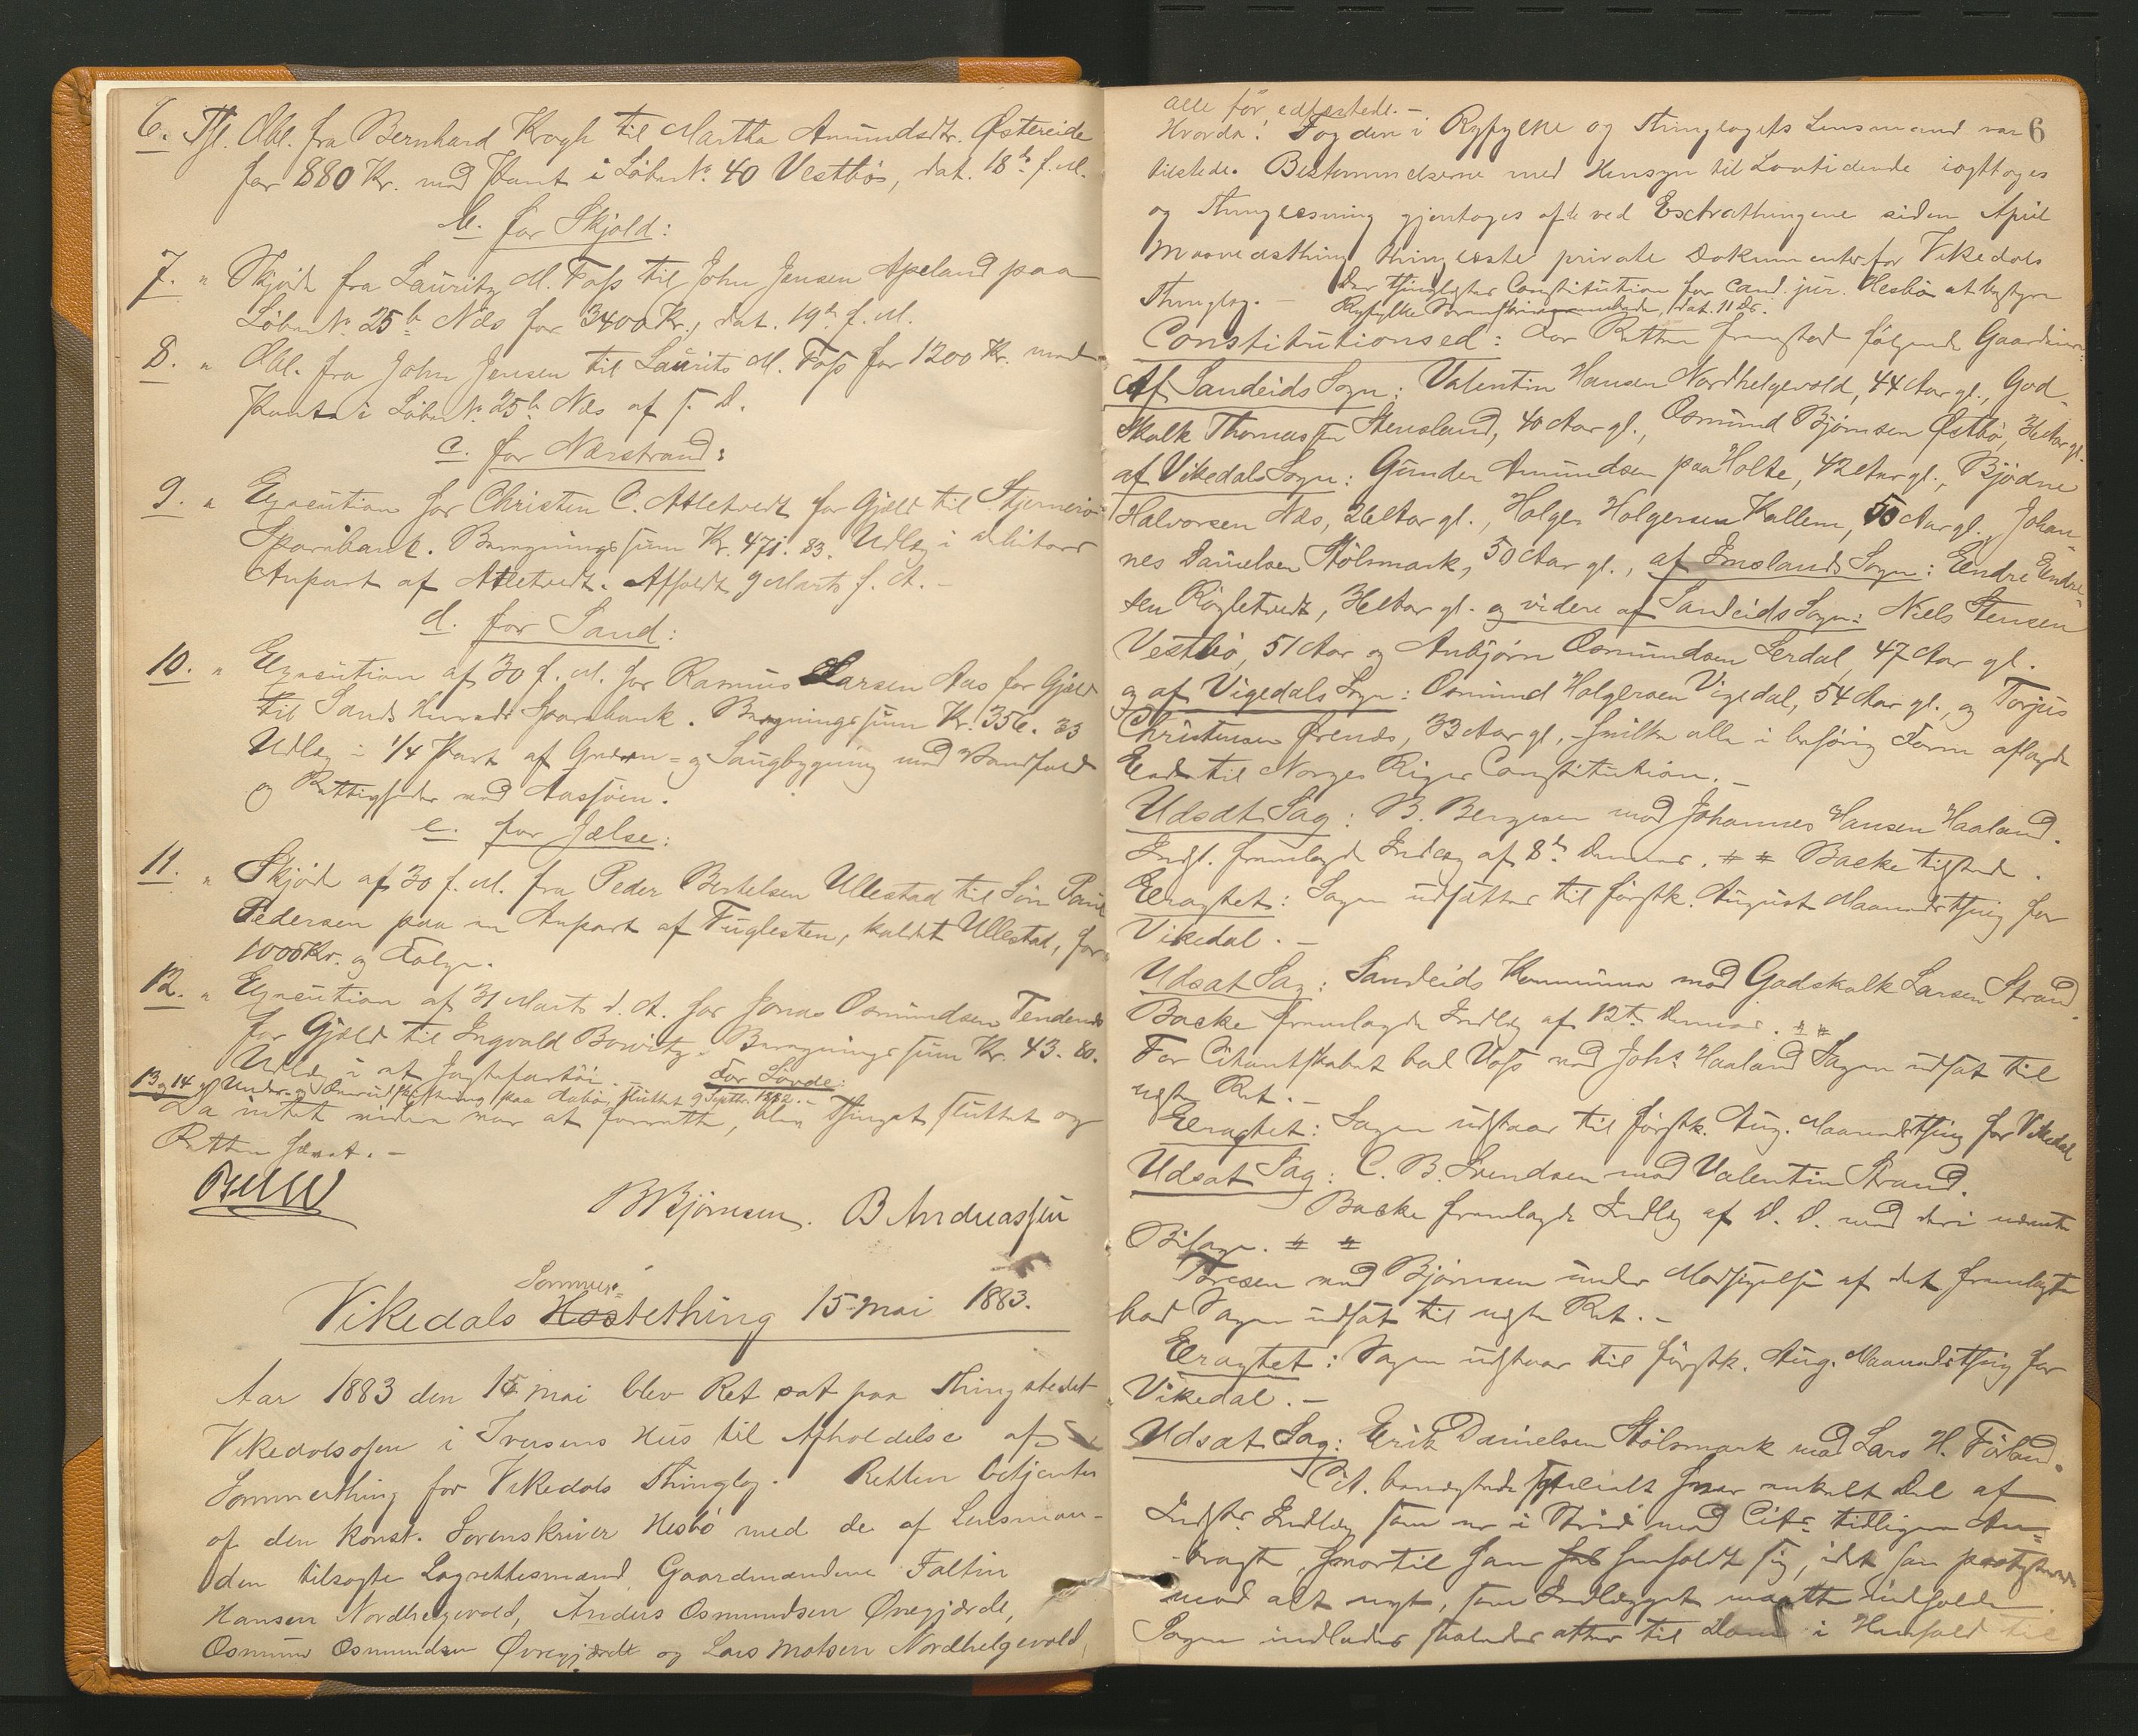 6. Tgl. Obl. fra Bernhard Krogh til Martha Amundsdtr. Østereide
for 880 Kr. med Pant i Løbe No. 40 Vestbø, dat. 18de f. M.
b. for Skjold:
7. " Skjøde fra Lauritz M. Foss til John Jensen Apeland paa
Løbe No. 25b Næs for 3400 Kr., dat. 19de f. M.
8. " Obl. fra John Jensen til Laurits M. Foss for 1200 Kr. med
Pant i Løbe No. 25b Næs af s. D.
c. for Nærstrand:
9. " Execution hos Christen C. Atletvedt for Gjæld til Stjernerø
Sparebank. Beregningssum Kr. 471. 83. Udlæg i Debitors
Anpart af Atletvedt. Afholdt 9 Marts f. A. -
d. for Sand:
10. " Execution af 30 f. M. hos Rasmus Larsen Aas for Gjæld
til Sands Herreds Sparebank. Beregningssum Kr. 356. 33
Udlæg i 1/4 Part af Qværn- og Saugbygning med Vandfald
og Rettigheder ved Aasøen.
e. for Jælse:
11. " Skjøde af 30 f. M. fra Peder Bertelsen Ullestad til Søn Paul
Pedersen paa en Anpart af Fuglesten, kaldet Ullestad, for
1000 Kr. og Følge.
12. " Execution af 31 Marts d. A. hos Jonas Osmundsen Tendenes
for Gjæld til Ingvald Bowitz. Beregningssum Kr. 43. 80.
Udlæg i et Jagtefartøi. - For Søvde:
13 og 14 Under- og Overudskiftning paa sluttet 9 Septbr. 1882. -
Da intet videre var at forrette, blev Thinget sluttet og
Retten hævet. -
B Bjørnsen. B Andreassen
Sommer=
Vikedals Høstething 15 mai 1883.
Aar 1883 den 15 mai blev Ret sat paa Thingstedet
Vikedalsosen i Iversens Hus til Afholdelse af
Sommerthing for Vikedals Thinglag. Retten betjentes
af den konst. Sorenskriver Hesbø med de af Lensman-
den tilsagte Lagrettesmænd, Gaardmændene Faltin
Hansen Nordhelgevold, Anders Osmundsen Øvregjærde,
Osmund Osmundsen Øvregjærde og Lars Matsen Nordhelgevold,
alle før edfæstede. -
6
Hvorda! Fogden i Ryfylke og Thinglagets Lensmand var
tilstede. Bestemmelserne med Hensyn til Lovtidende iagttoges
og Thinglæsning gjentoges af de ved Extrathingene siden April
Maanedsthing thinglæste private Dokumenter for Vikedals
Thinglag. - Der thinglæstes Constitution for Cand. jur. Hesbø at bestyre
Ryfylke Sorenskriverembede, dat. 11 ds.
Constitutionsed: For Retten fremstod følgende Gaardmænd:
Af Sandeids Sogn: Valentin Hansen Nordhelgevold, 44 Aar gl., God-
skalk Thomassen Stensland, 40 Aar gl., Osmund Bjørnsen Østbø, 36 Aar gl.
af Vikedals Sogn: Gunder Amundsen paa Holte, 42 Aar gl., Bjødne
Halvorsen Næs, 26 Aar gl., Holger Holgersen Kallem, 50 Aar gl., Johan-
nes Danielsen Stølsmark, 50 Aar gl., af Imslands Sogn: Endre Endre-
sen Røgletvedt, 36 Aar gl. og videre af Sandeids Sogn: Niels Stensen
Vestbø, 51 Aar og Anbjørn Osmundsen Lerdal, 47 Aar gl.
og af Vigedals Sogn: Osmund Holgersen Vigedal, 54 Aar gl., og Torjus
Christensen Ørenæs, 33 Aar gl., - hvilke alle i behørig Form aflagde
Eed til Norges Riges Constitution. -
Udsat Sag: B. Bergesen mod Johannes Hansen Haaland.
Indst. fremlagde Indlæg af 8de Dennes. # # Backe tilstede.
Eragtet: Sagen udsættes til førstk. August Maanedsthing for
Vikedal. -
Udsat Sag: Sandeids Kommune mod Godskalk Larsen Strand.
Backe fremlagde Indlæg af 12te Dennes. # #
For Citantskabet bad Voss ved Johs Haaland Sagen udsat til
næste Ret. -
Eragtet: Sagen udstaar til førstk. Aug. Maanedsthing for Vikedal
Udsat Sag: C. B. Svendsen mod Valentin Strand.
Backe fremlagde Indlæg af D. D. med deri nævnte
Bilage. # #
Toresen ved Bjørnsen under Modsigelse af det fremlagte
bad Sagen udsat til næste Ret. -
Eragtet: Sagen udstaar til førstk. Aug. Maanedsthing for
Vikedal. -
Udsat Sag: Erik Danielsen Stølsmark mod Lars H. Førland.
Cit. benægtede specielt hver enkelt Del af
Indst. Indlæg som er i Strid med Citr. tidligere An-
bragte, hvortil han henholdt sig, idet han protesterede
mod alt nyt, som Indlægget maatte indeholde.
Sagen indlades saaledes atter til Doms i Henhold til